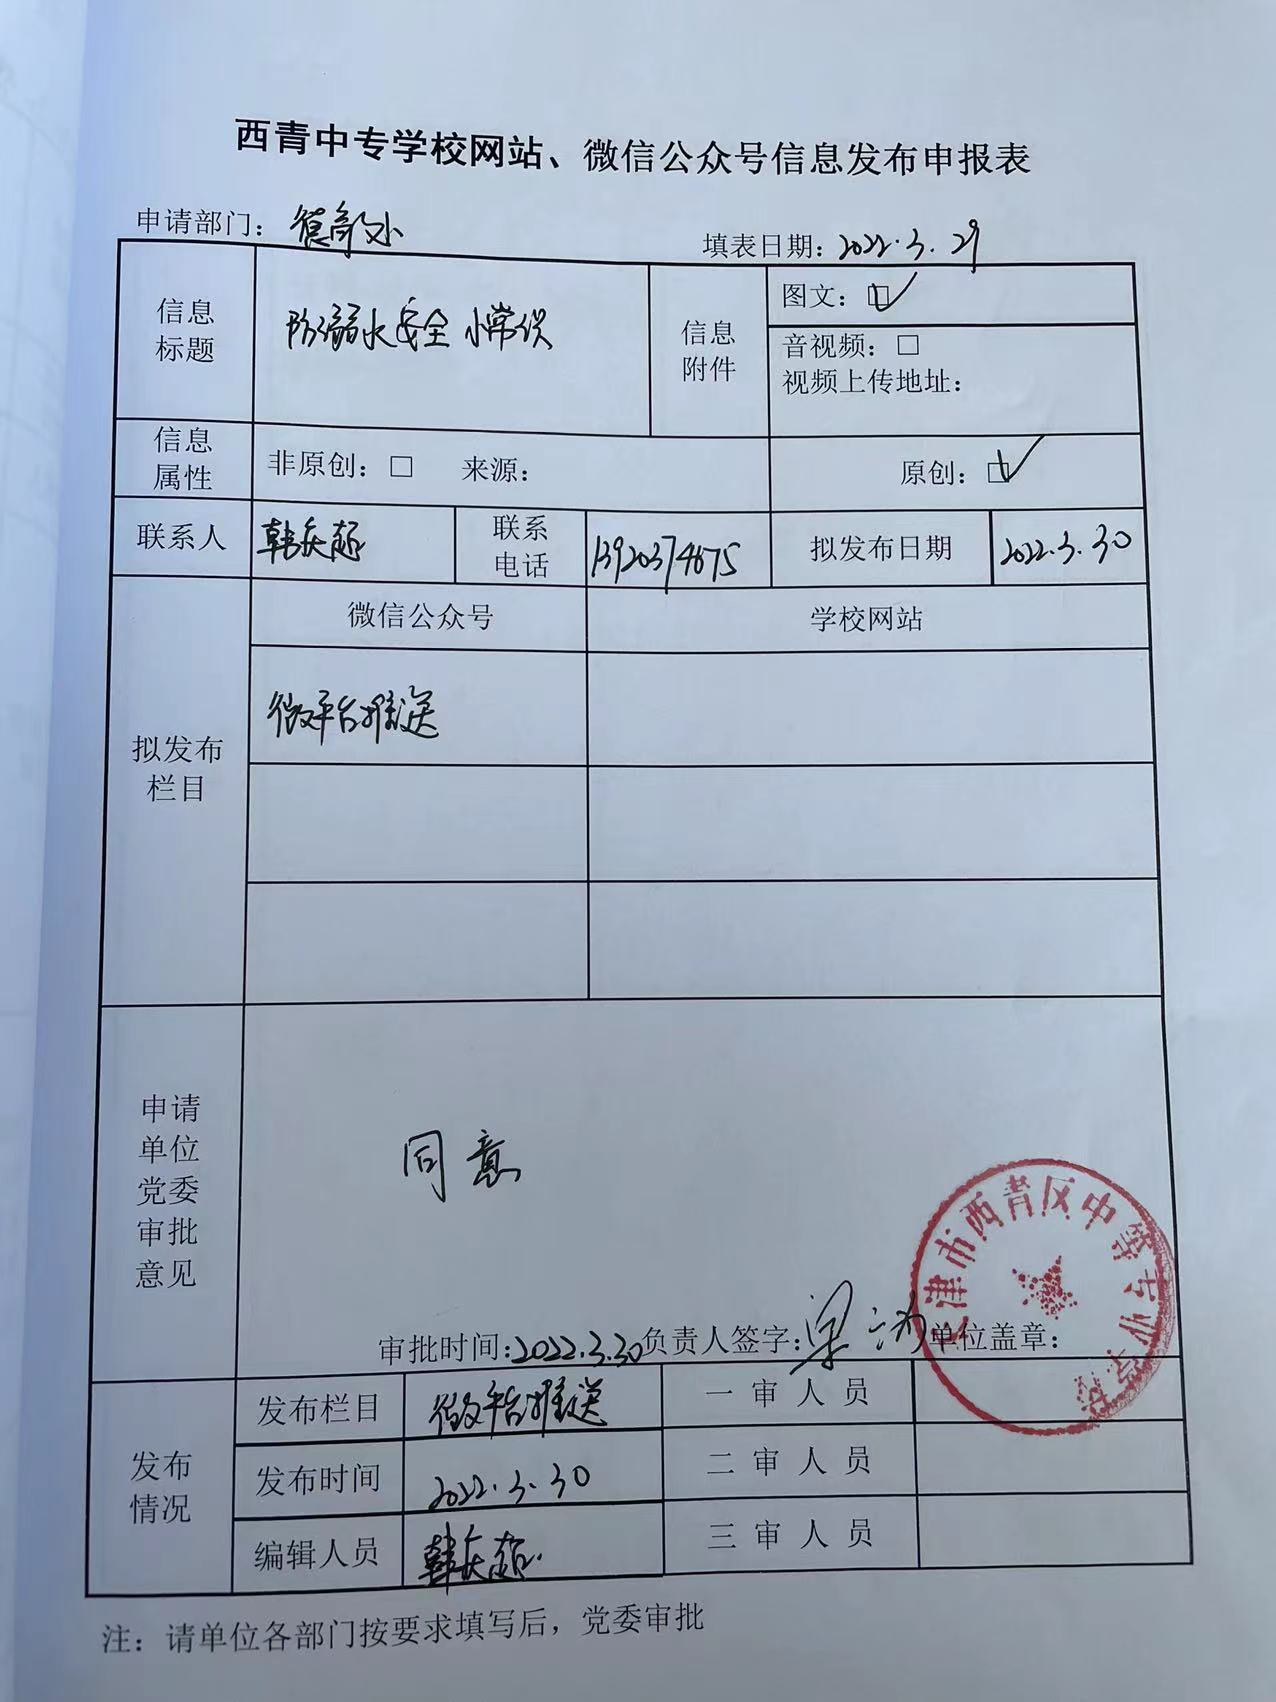 西青中专学校网站、微信公众号信息发布申报表
申请部门：德育处
填表日期：2022.3.29
信息标题
防溺水安全小常识
信息附件
图文：☑
音视频：□
视频上传地址：
信息属性
非原创：□ 来源：
原创：☑
联系人
韩庆超
联系电话
13920374675
拟发布日期
2022.3.30
拟发布栏目
微信公众号
学校网站
微平台推送
申请单位党委审批意见
同意
审批时间：2022.3.30 负责人签字：梁 单位盖章：
天津市西青区中等专业学校
发布情况
发布栏目
微平台推送
一审人员
发布时间
2022.3.30
二审人员
编辑人员
韩庆超
三审人员
注：请单位各部门按要求填写后，党委审批